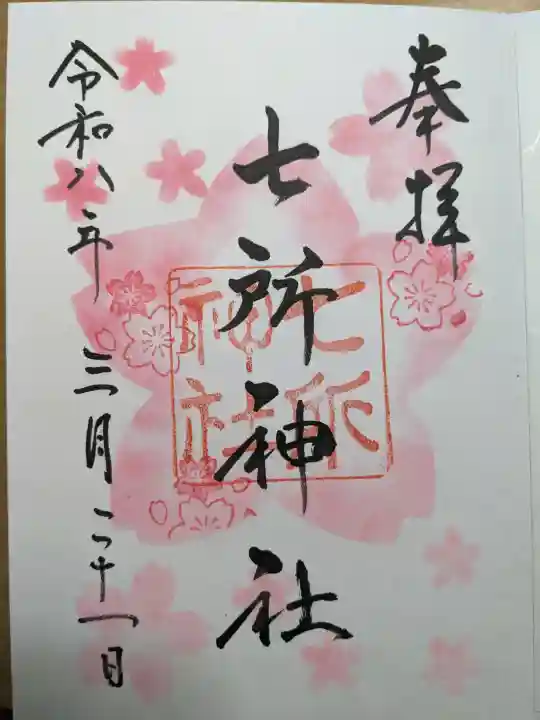 奉拝
七所神社
七所
神社
令和八年三月二十一日